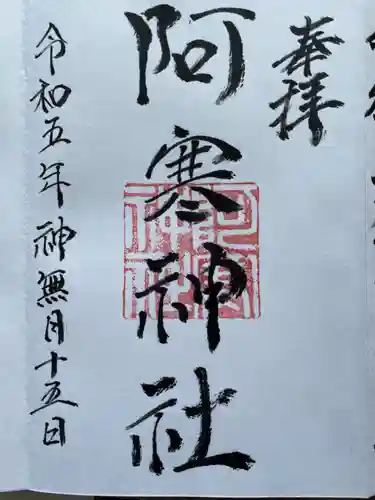 奉拝
阿寒神社
阿寒神社
令和五年神無月十五日